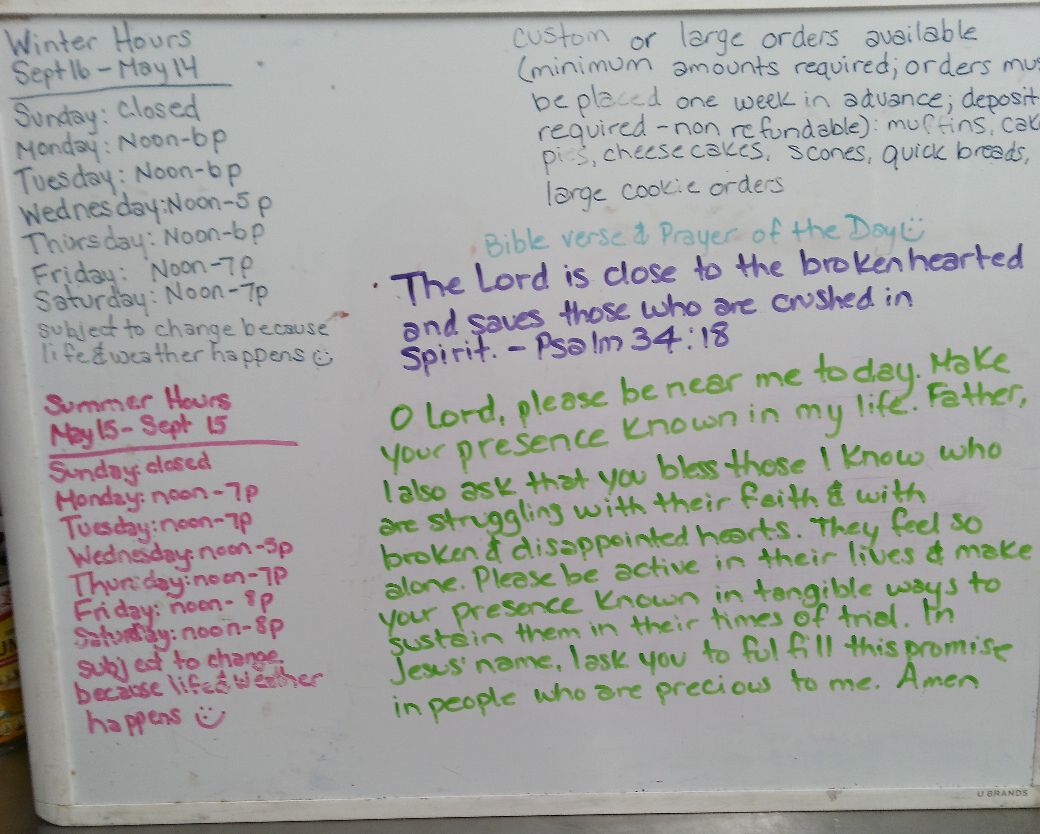 Winter Hours
Sept 16 - May 14
Sunday: Closed
Monday: Noon-6p
Tuesday: Noon-6p
Wednesday: Noon-5p
Thursday: Noon-6p
Friday: Noon-7p
Saturday: Noon-7p
subject to change because
life & weather happens
Summer Hours
May 15 - Sept 15
Sunday: closed
Monday: noon-7p
Tuesday: noon-7p
Wednesday: noon-5p
Thursday: noon-7p
Friday: noon-8p
Saturday: noon-8p
subject to change
because life & weather
happens
custom or large orders available
(minimum amounts required; orders
be placed one week in advance; deposit
required - non refundable): muffins,
pies, cheesecakes, scones, quick breads,
large cookie orders
Bible verse & Prayer of the Day
The Lord is close to the brokenhearted
and saves those who are crushed in
Spirit. - Psalm 34:18
O Lord, please be near me today. Make
your presence known in my life. Father,
I also ask that you bless those I know who
are struggling with their faith & with
broken & disappointed hearts. They feel so
alone. Please be active in their lives & make
your presence known in tangible ways to
sustain them in their times of trial. In
Jesus' name, I ask you to fulfill this promise
in people who are precious to me. Amen
U BRANDS